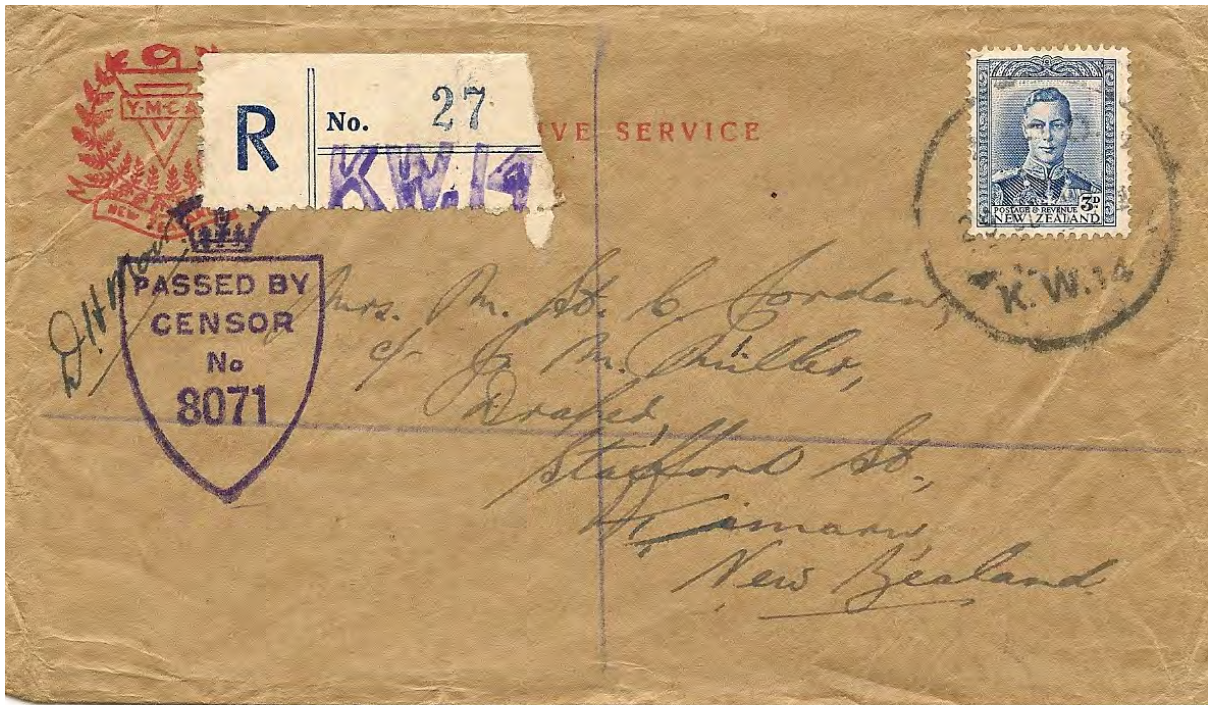 Y·M·C·A
NEW
R
No. 27
KW.14
IVE SERVICE
POSTAGE & REVENUE
3D
NEW ZEALAND
K.W.14
PASSED BY
CENSOR
No
8071
Mrs. M. St. C Jordan,
c/- J. M. Müller,
Draper,
Stafford St.,
Timaru,
New Zealand